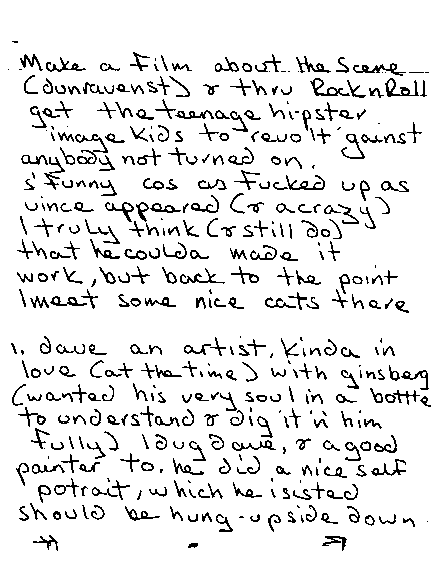 Make a film about the scene
(dunravenst) & thru RocknRoll
get the teenage hipster
image kids to 'revolt' gainst
anybody not turned on.
s'funny cos as fucked up as
vince appeared (& a crazy)
I truly think (& still do)
that he coulda made it
work, but back to the point
I meet some nice cats there
1. dave an artist, kinda in
love (at the time) with ginsberg
(wanted his very soul in a bottle
to understand & dig it 'n him
fully) I dug dave, & a good
painter to. he did a nice self
potrait, which he isisted
should be hung-upside down